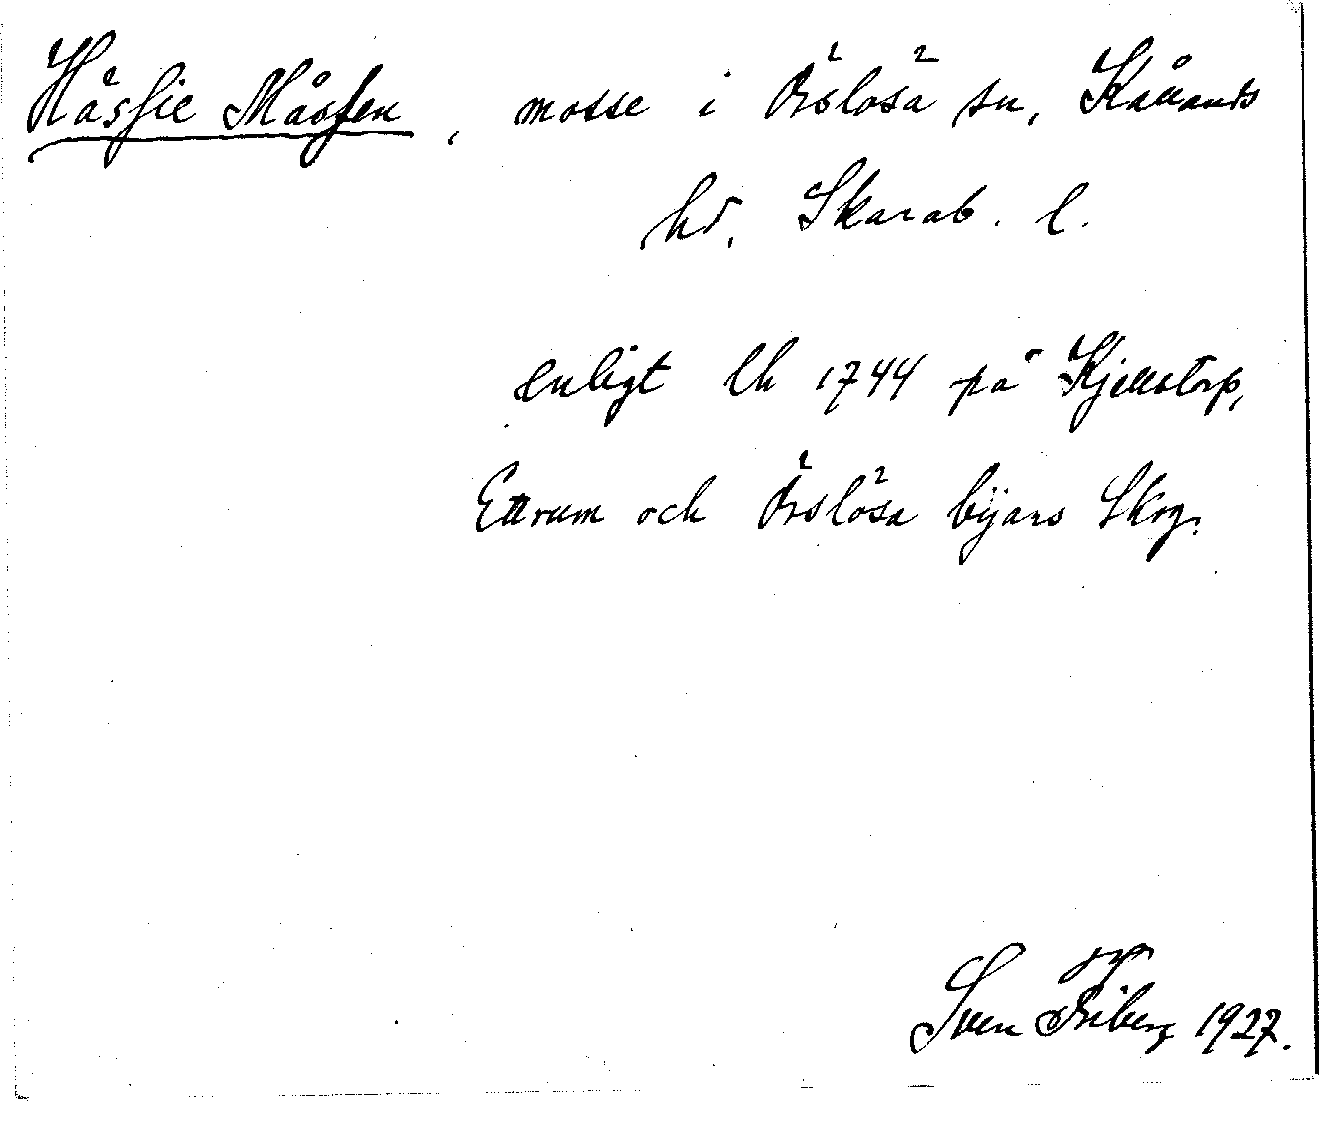 Håssie Måssen, mosse i Örslösa sn, Kållands
hd. Skarab. l.
enligt lh 1744 på Kjellstorp,
Ettrum och Örslösa bÿars Skog.
Sven Friberg 1927.